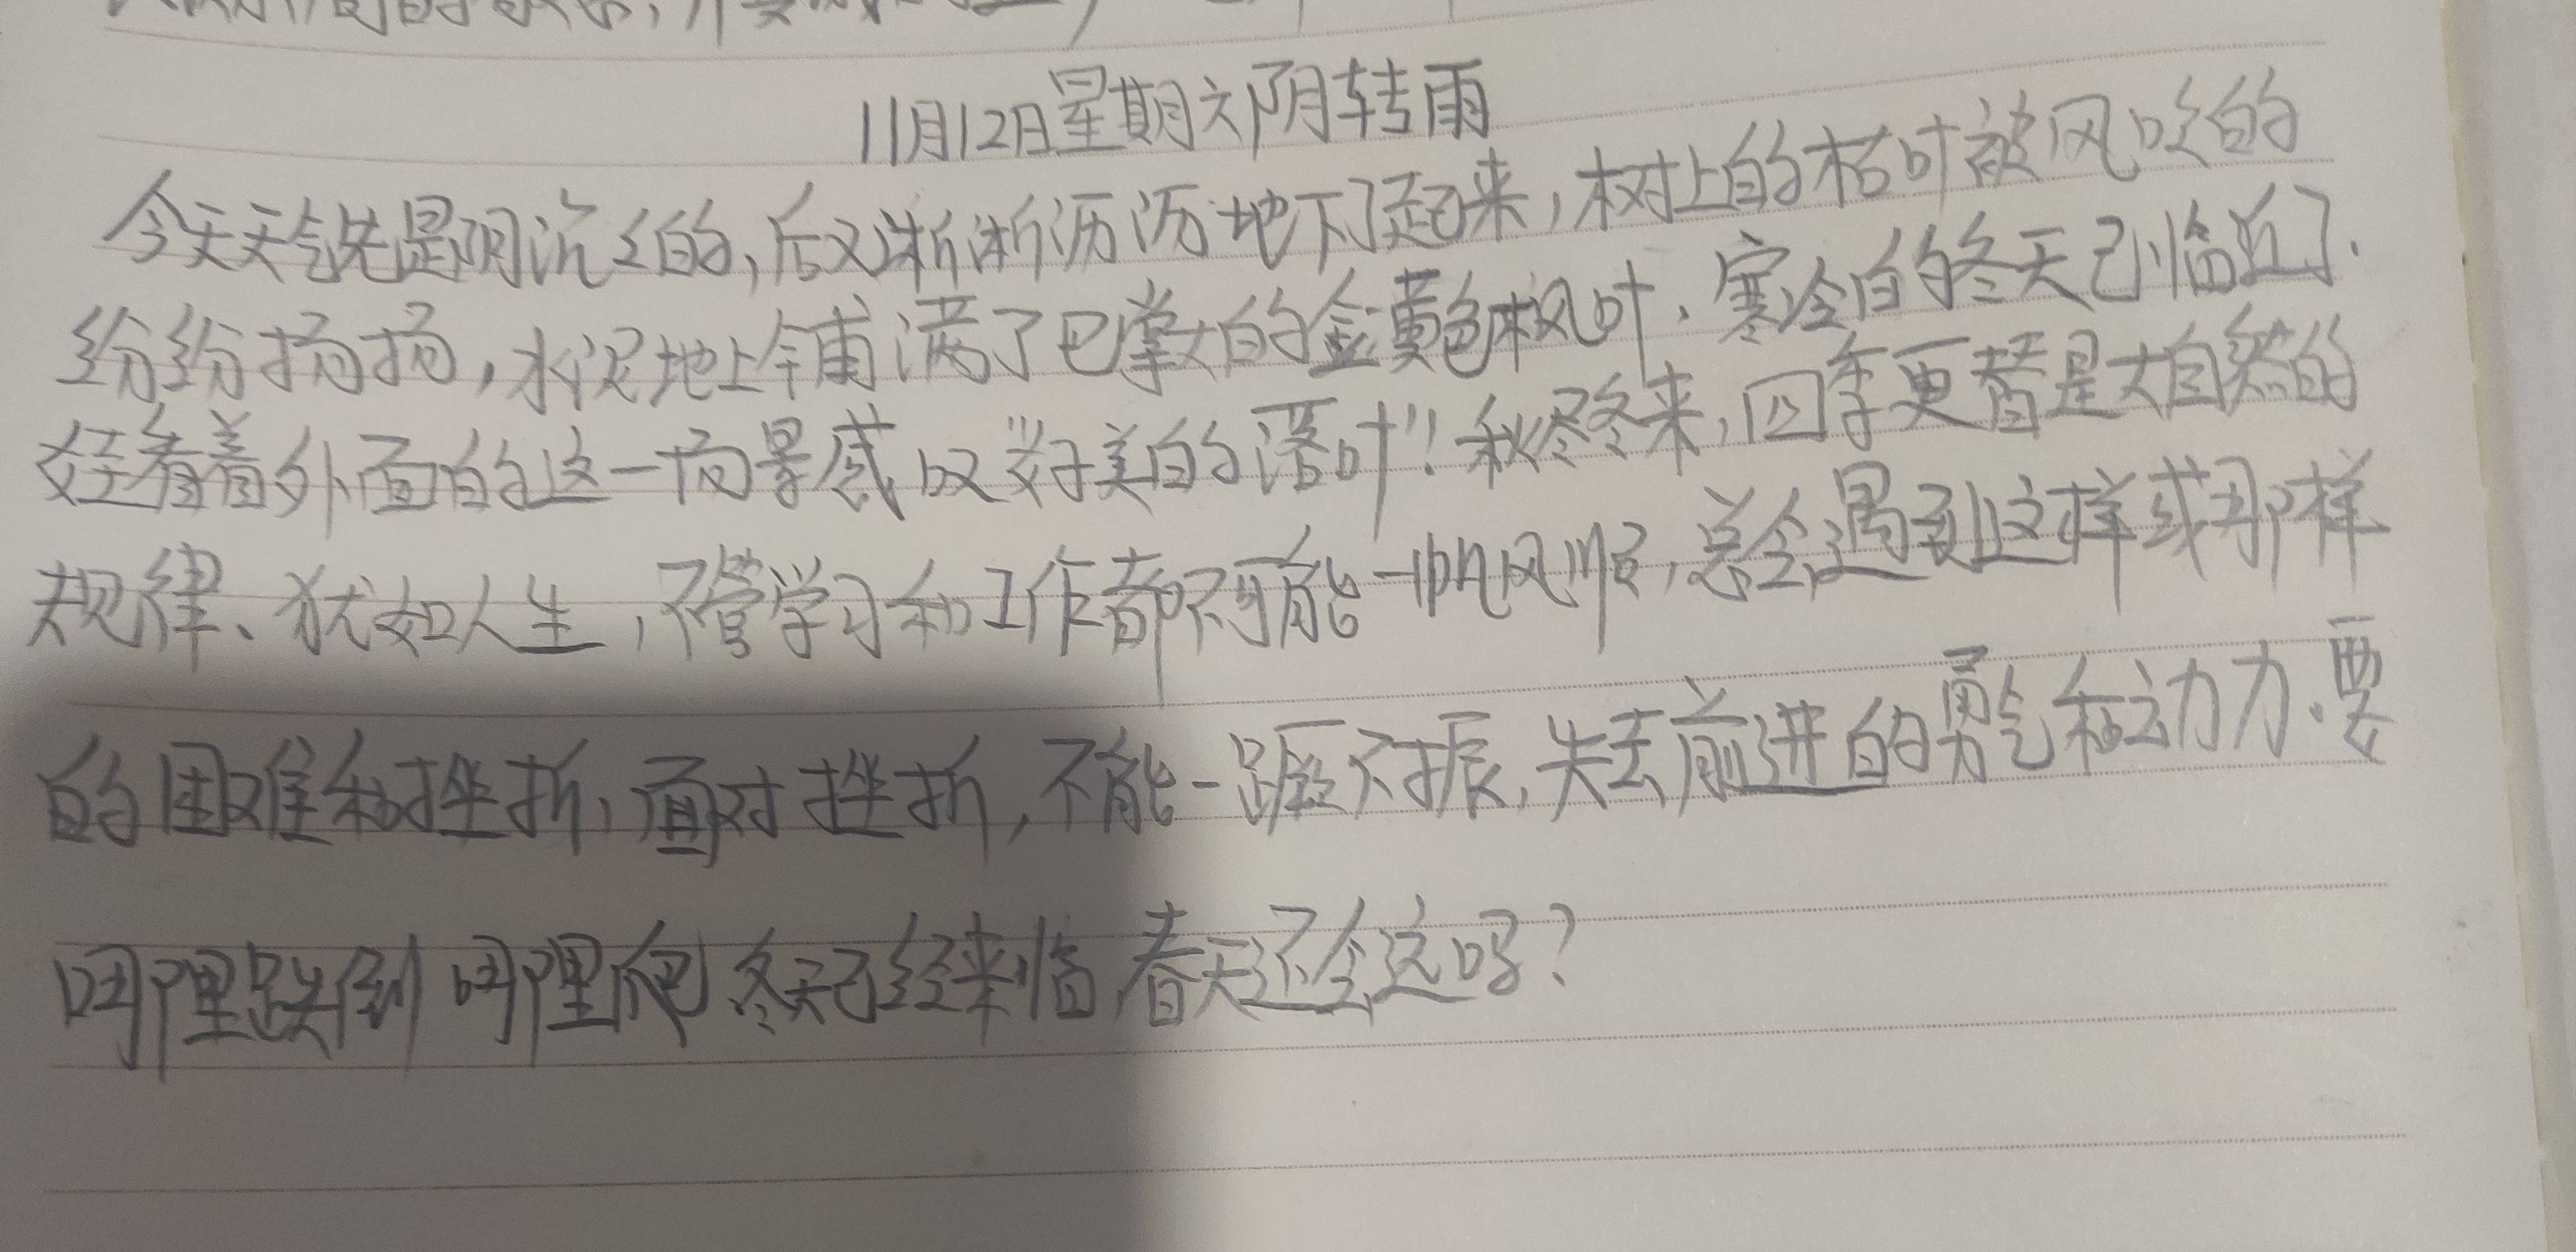 11月12日星期六阴转雨
今天天气先是阴沉沉的,后又淅淅沥沥地下了起来,树上的枯叶被风吹的
纷纷扬扬,水泥地上铺满了巴掌大的金黄色枫叶、寒冷的冬天已临近了.
娃看着外面的这一场景感叹"好美的落叶"!秋尽冬来,四季更替是大自然的
规律、犹如人生,不管学习和工作都不可能一帆风顺,总会遇到这样或那样
的困难和挫折,面对挫折,不能一蹶不振,失去前进的勇气和动力.要
哪里跌倒哪里爬 冬天已经来临,春天还会远吗?